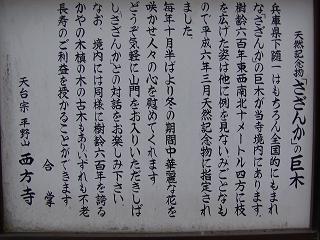 天然記念物「さざんか」の巨木
兵庫県下随一はもちろん全国的にもまれ
なさざんかの巨木が当寺境内にあります。
樹齢六百年東西南北十メートル四方に枝
を広げた姿は他に例を見ないみごとなも
ので平成六年三月天然記念物に指定され
ました。
毎年十月半ばより冬の期間中華麗な花を
咲かせ人々の心を慰めてくれます
どうぞ気軽に山門をお入りいただきしば
しさざんかとの対話をお楽しみ下さい。
なお、境内には同様に樹齢六百年を誇る
かやの木槙の木の古木もありいずれも不老
長寿のご利益を授かることができます
合掌
天台宗 平野山 西方寺